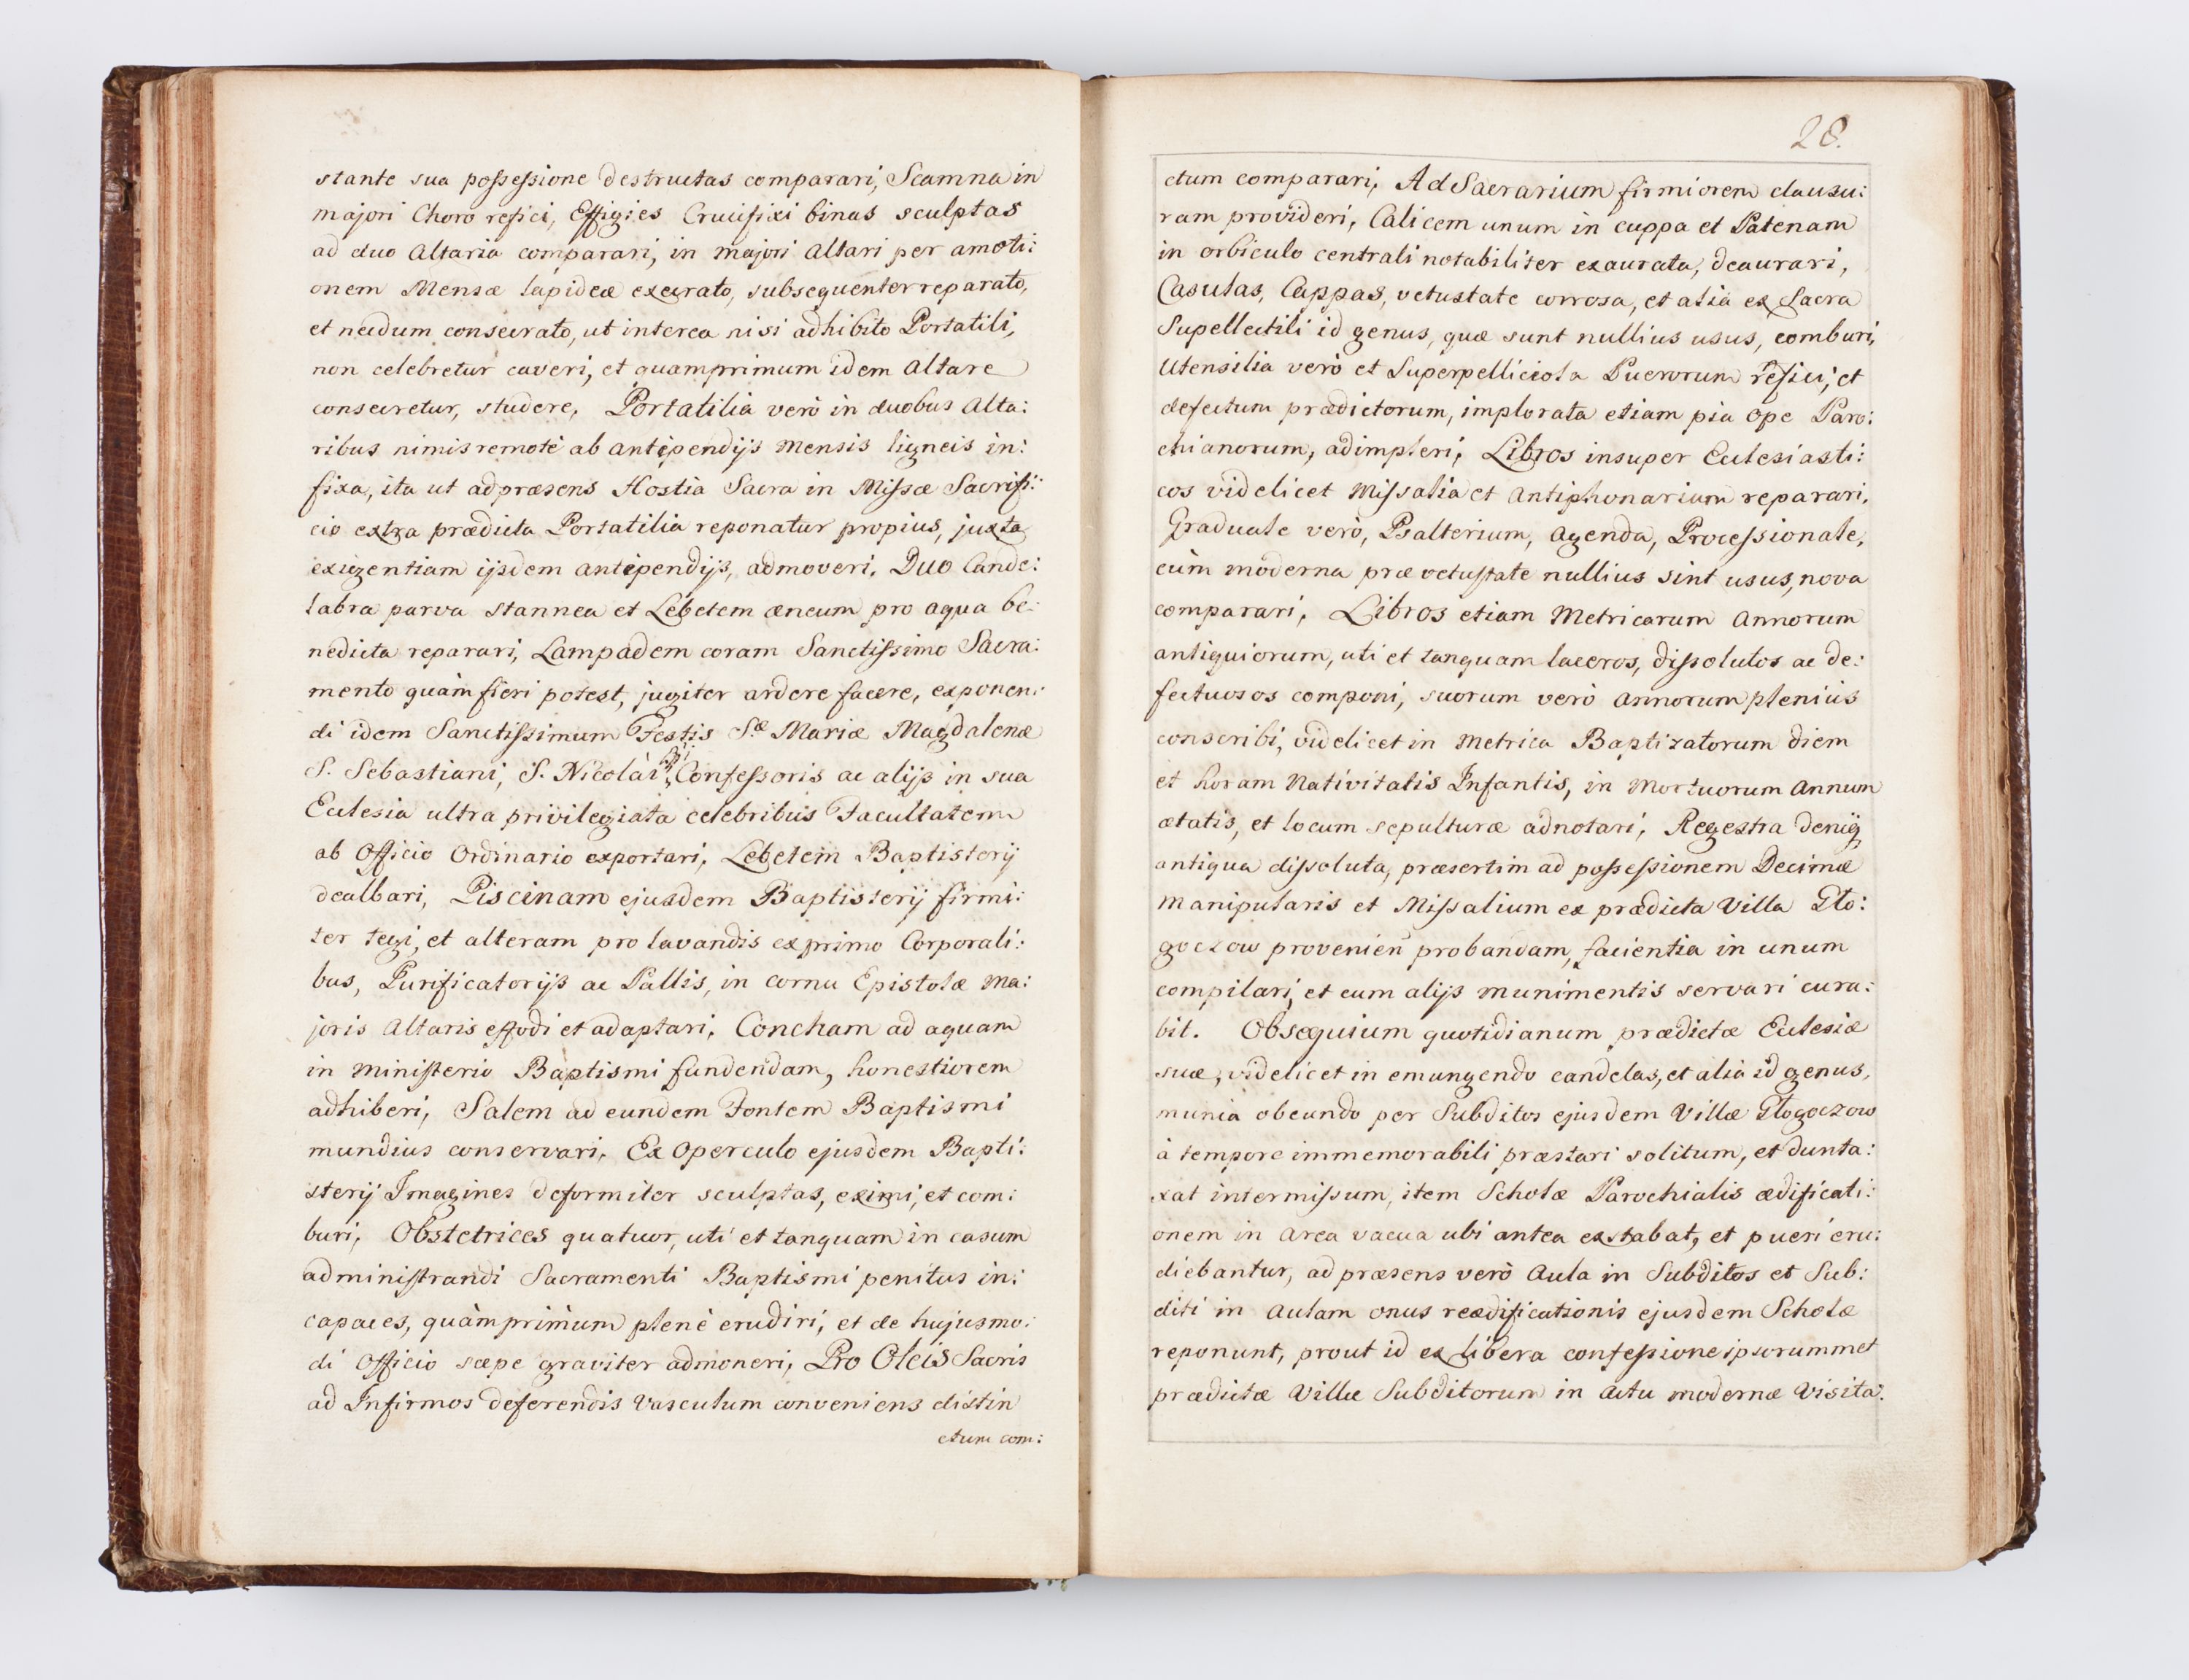 stante sua possessione destructas comparari, Scamna in
majori Choro refici, Effigies Crucifixi binas sculptas
ad duo Altaria comparari, in majori Altari per amoti:
onem Mensæ lapideæ execrato, subsequenter reparato,
et necdum consecrato, ut interea nisi adhibito Portatili,
non celebretur caveri, et quamprimum idem Altare
consecretur, studere, Portatilia verò in duobus Alta:
ribus nimis remotè ab Antipendijs Mensis ligneis in:
fixa, ita ut ad præsens Hostia Sacra in Missæ Sacrifi:
cio extra prædicta Portatilia reponatur propius, juxta
exigentiam ijsdem Antipendijs, admoveri. Duo Cande:
labra parva stannea et Lebetem æneum pro aqua be:
nedicta reparari, Lampadem coram Sanctissimo Sacra:
mento quàm fieri potest, jugiter ardere facere, exponen:
di idem Sanctissimum Festis S.æ Mariæ Magdalenæ
S. Sebastiani, S. Nicolai Epi Confessoris ac alijs in sua
Ecclesia ultra privilegiata celebribus Facultatem
ab Officio Ordinario exportari, Lebetem Baptisterij
dealbari, Piscinam ejusdem Baptisterij firmi:
ter tegi, et alteram pro lavandis ex primo Corporali:
bus, Purificatorijs ac Pallis, in cornu Epistolæ Ma:
joris Altaris effodi et adaptari. Concham ad aquam
in ministerio Baptismi fundendam, honestiorem
adhiberi, Salem ad eundem Fontem Baptismi
mundius conservari. Ex Operculo ejusdem Bapti:
sterij Imagines deformiter sculptas, eximi, et com:
buri, Obstetrices quatuor, uti et tanquam in casum
administrandi Sacramenti Baptismi penitus in:
capaces, quàmprimùm plenè erudiri, et de hujusmo:
di Officio sæpe graviter admoneri, Pro Oleis Sacris
ad Infirmos deferendis Vasculum conveniens distin
ctum com:
28.
ctum comparari, Ad Sacrarium firmiorem clausu:
ram provideri, Calicem unum in cuppa et Patenam
in orbiculo centrali notabiliter exaurata, deaurari,
Casulas, Cappas, vetustate corrosa, et alia ex Sacra
Supellectili id genus, quæ sunt nullius usus, comburi,
Utensilia verò et Superpelliciola Puerorum refici, et
defectum prædictorum, implorata etiam pia ope Paro:
chianorum, adimpleri, Libros insuper Ecclesiasti:
cos videlicet Missalia et Antiphonarium reparari,
Graduale verò, Psalterium, Agenda, Processionale,
cùm moderna præ vetustate nullius sint usus, nova
comparari, Libros etiam Metricarum Annorum
antiquiorum, uti et tanquam laceros, dissolutos ac de:
fectuosos componi, suorum verò Annorum pleniùs
conscribi, videlicet in Metrica Baptizatorum diem
et horam Nativitatis Infantis, in Mortuorum Annum
ætatis, et locum sepulturæ adnotari, Regestra deniq
antiqua dissoluta, præsertim ad possessionem Decimæ
manipularis et Missalium ex prædicta Villa Glo:
goczow provenien̄ probandam, facientia in unum
compilari, et cum alijs munimentis servari cura:
bit. Obsequium quotidianum prædictæ Ecclesiæ
suæ, videlicet in emungendo candelas, et alia id genus,
munia obeundo per Subditos ejusdem Villæ Głogoczow
à tempore immemorabili præstari solitum, et dunta:
xat intermissum, item Scholæ Parochialis ædificati:
onem in Area vacua ubi antea exstabat, et pueri eru:
diebantur, ad præsens verò Aula in Subditos et Sub:
diti in Aulam onus reædificationis ejusdem Scholæ
reponunt, prout id ex libera confessione ipsorummet
prædictæ Villæ Subditorum in Actu modernæ Visita: